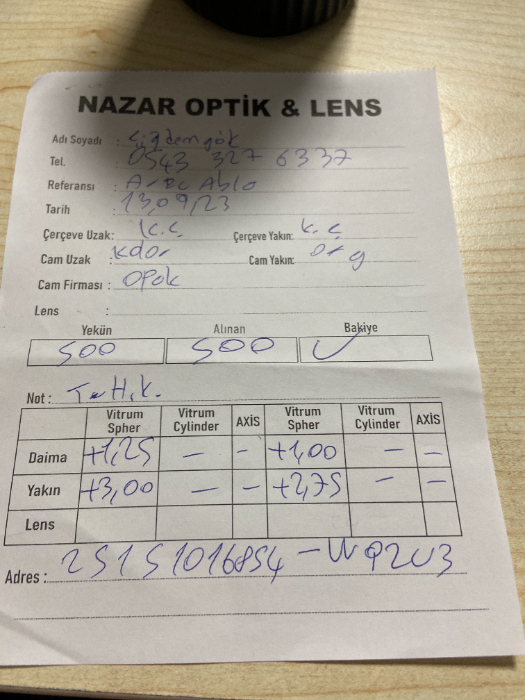 NAZAR OPTİK & LENS
Adı Soyadı : Çiğdem gök
Tel. : 0543 327 6337
Referansı : Ablo
Tarih : 13,09,23
Çerçeve Uzak: K.Ç. Çerçeve Yakın: K.Ç
Cam Uzak : Cam Yakın: org
Cam Firması : OPAK
Lens :
Yekün Alınan Bakiye
500 500
Not :
Vitrum Spher Vitrum Cylinder AXİS Vitrum Spher Vitrum Cylinder AXİS
Daima +1,25 — — +1,00 — —
Yakın +3,00 — — +2,75 — —
Lens
Adres : 25151016854-WQ2U3